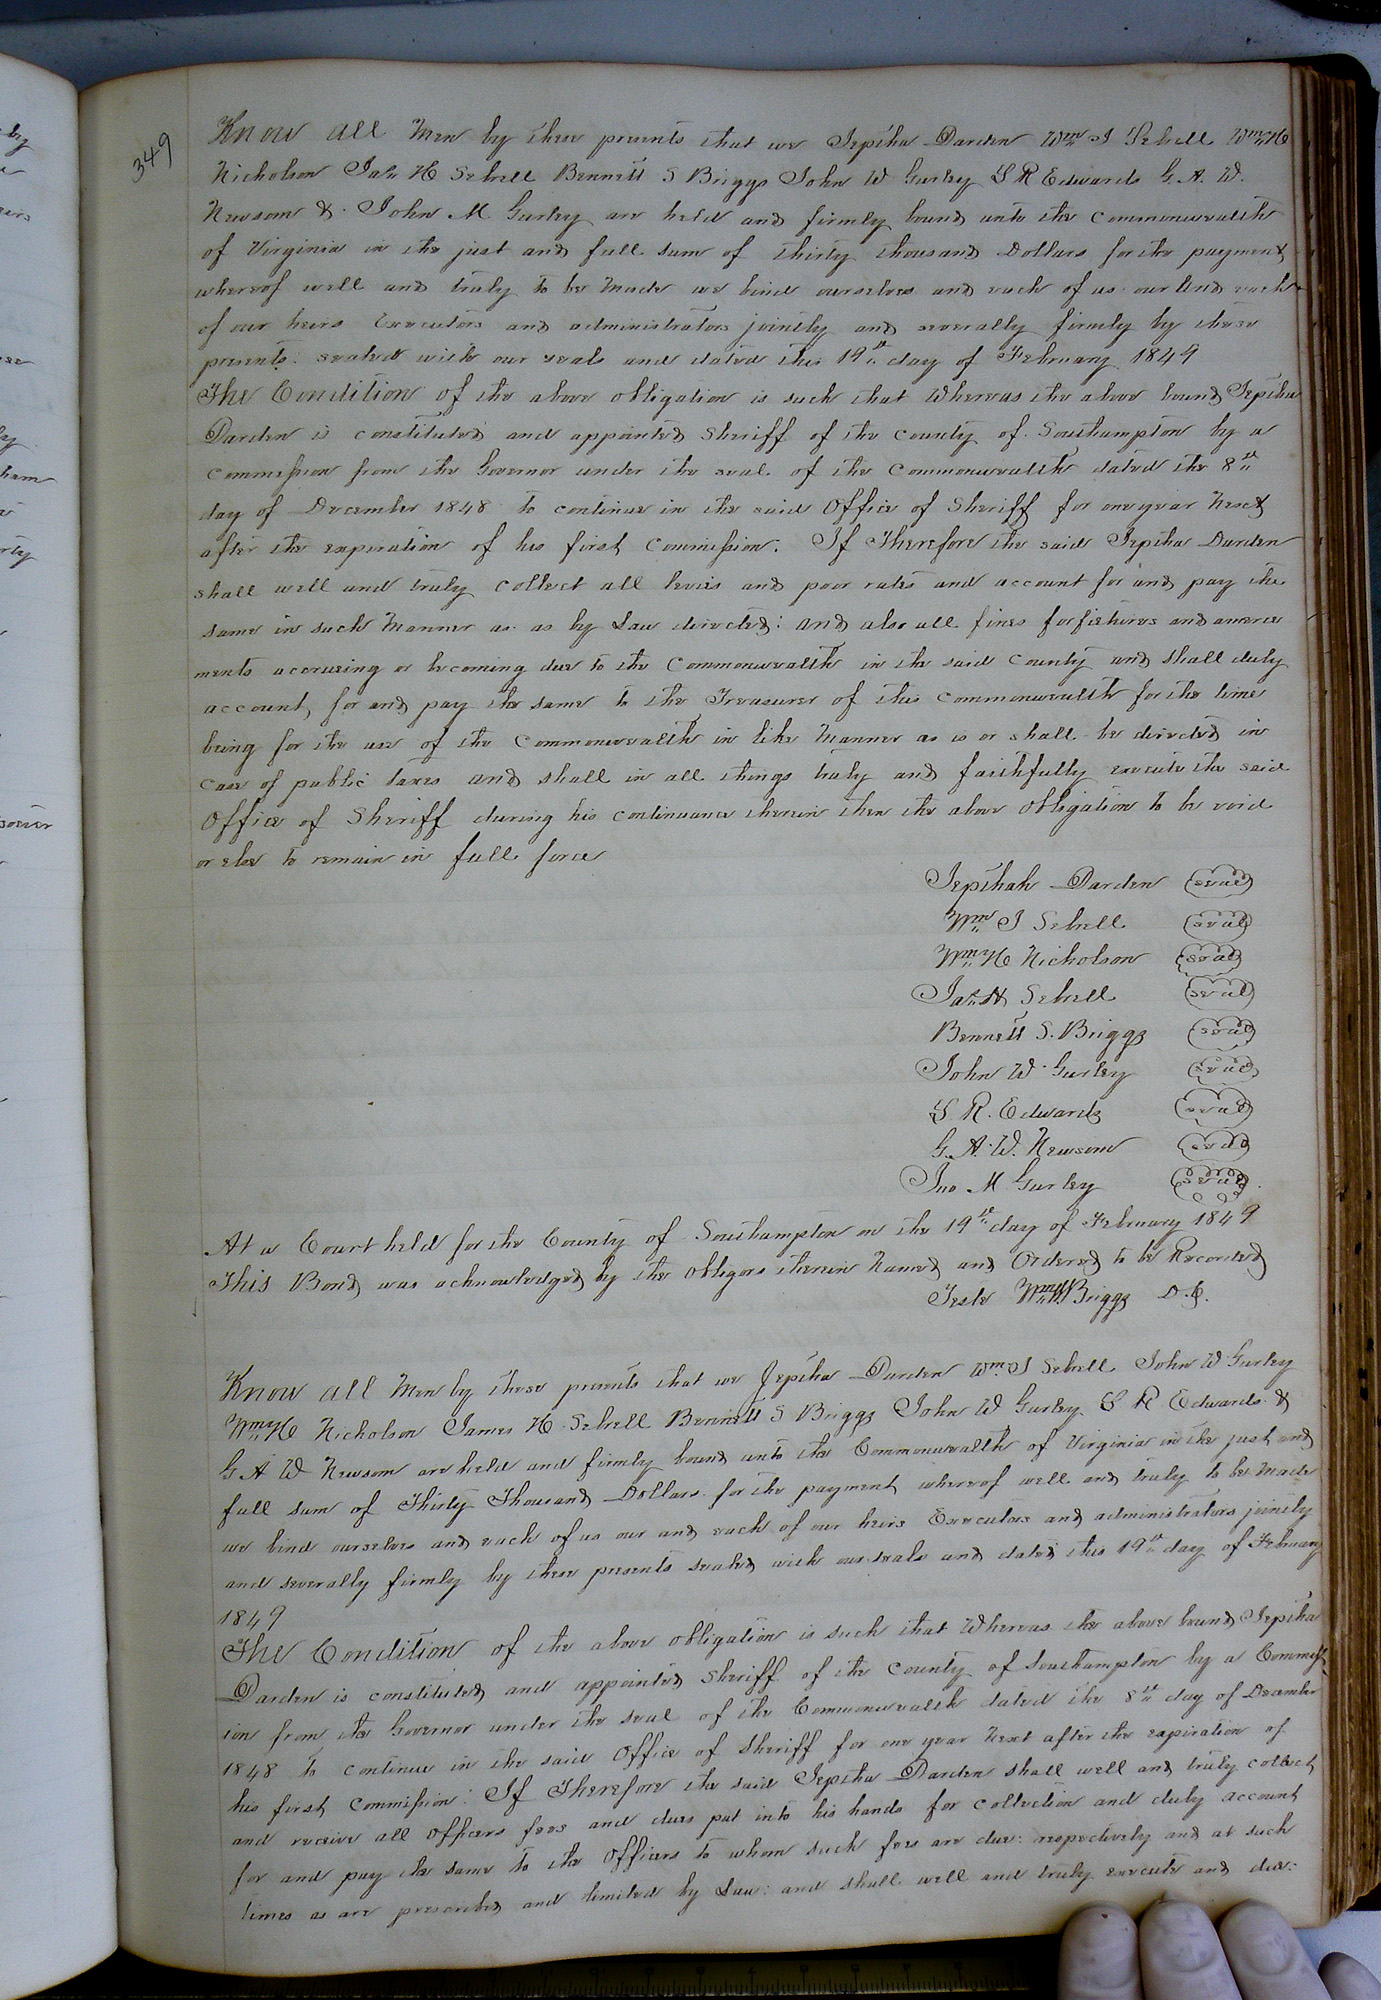 349
Know all Men by these presents that we Jeptha Darden Wm J Sebrell Wm H
Nicholson Jas H Sebrell Bennett S Briggs John W Gurley S R Edwards G. A. W.
Newsom & John M Gurley are held and firmly bound unto the Commonwealth
of Virginia in the just and full sum of thirty thousand Dollars for the payment
whereof well and truly to be made we bind ourselves and each of us our and each
of our heirs Executors and administrators jointly and severally firmly by these
presents. sealed with our seals and dated this 19th day of February 1849
The Condition of the above obligation is such that Whereas the above bound Jeptha
Darden is constituted and appointed Sheriff of the county of Southampton by a
commission from the Governor under the seal of the Commonwealth dated the 8th
day of December 1848 to continue in the said Office of Sheriff for one year Next
after the expiration of his first Commission. If Therefore the said Jeptha Darden
shall well and truly Collect all levies and poor rates and account for and pay the
same in such Manner as as by Law directed: and also all fines forfietures and amerce
ments accrueing or becoming due to the Commonwealth in the said County and shall duly
account, for and pay the same to the Treasurer of this Commonwealth for the time
being for the use of the Commonwealth in like Manner as is or shall be directed in
case of public taxes and shall in all things truly and faithfully execute the said
Office of Sheriff during his continuance therein then the above Obligation to be void
or else to remain in full force
Jepthah Darden seal
Wm J Sebrell seal
Wm H Nicholson seal
Jas H Sebrell seal
Bennett S. Briggs seal
John W Gurley seal
S R. Edwards seal
G. A. W. Newsom seal
Jno M Gurley seal
At a Court held for the County of Southampton on the 19th day of February 1849
This Bond was acknowledged by the obligors therein Named and Ordered to be Recorded
Teste Wm H Briggs D. C.
Know all Men by these presents that we Jeptha Darden Wm J Sebrell John W Gurley
Wm H Nicholson James H Sebrell Bennett S Briggs John W Gurley S R Edwards &
G A W Newsom are held and firmly bound unto the Commonwealth of Virginia in the just and
full sum of Thirty Thousand Dollars for the payment whereof well and truly to be made
we bind ourselves and each of us our and each of our heirs Executors and administrators jointly
and severally firmly by these presents sealed with our seals and dated this 19th day of February
1849
The Condition of the above obligation is such that Whereas the above bound Jeptha
Darden is constituted and appointed Sheriff of the County of Southampton by a Commiss
ion from the Governor under the seal of the Commonwealth dated the 8th day of December
1848 to continue in the said Office of Sheriff for one year Next after the expiration of
his first Commission: If Therefore the said Jeptha Darden shall well and truly collect
and receive all Officers fees and dues put into his hands for Collection and duly account
for and pay the same to the Officers to whom such fees are due: respectively and at such
times as are prescribed and limited by Law: and shall well and truly execute and due: